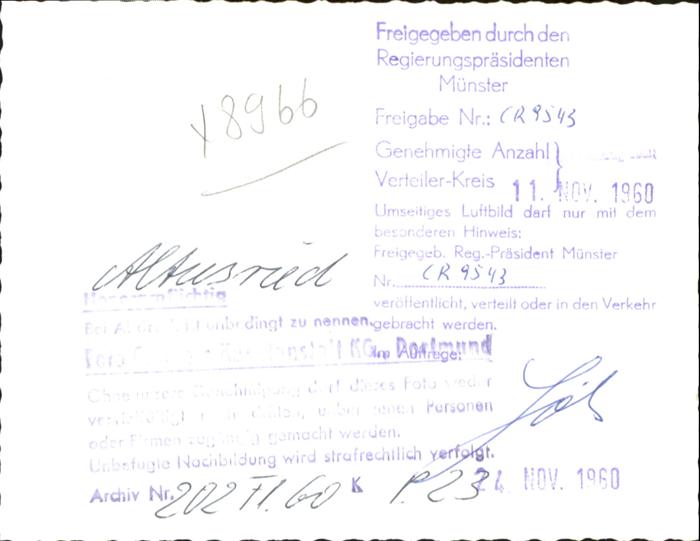 Freigegeben durch den
Regierungspräsidenten
Münster
Freigabe Nr.: CR 9543
Genehmigte Anzahl
Verteiler-Kreis
11. NOV. 1960
Umseitiges Luftbild darf nur mit dem
besonderen Hinweis:
Freigegeb. Reg.-Präsident Münster
Nr. CR 9543
veröffentlicht, verteilt oder in den Verkehr
gebracht werden.
Im Auftrage:
x8966
Altusried
Honorarpflichtig
Bei Abdruck unbedingt zu nennen.
KG Dortmund
Ohne unsere Genehmigung darf dieses Foto weder
vervielfältigt Personen
oder Firmen zugängig gemacht werden.
Unbefugte Nachbildung wird strafrechtlich verfolgt.
Archiv Nr. 202 F1.60 K P.23
24. NOV. 1960